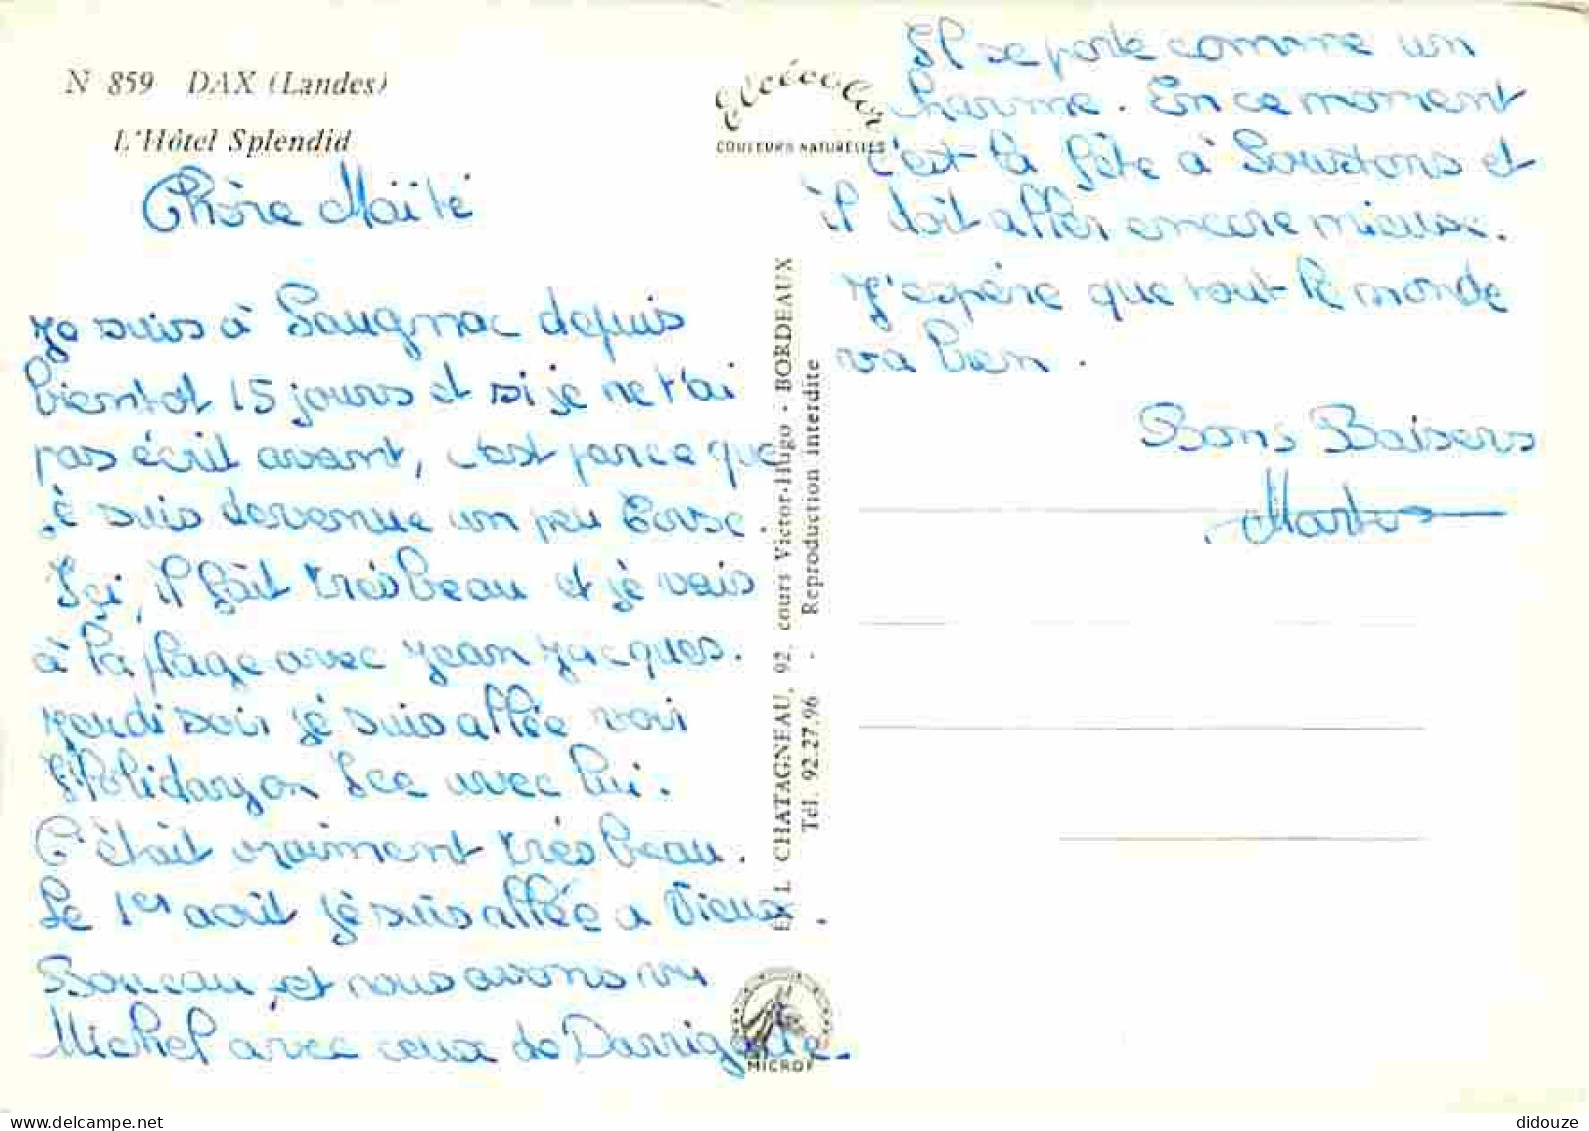 N 859 DAX (Landes)
L'Hôtel Splendid
Elcécolor
COULEURS NATURELLES
Chère Maïté
Je suis à Saugnac depuis
bientôt 15 jours et si je ne t'ai
pas écrit avant, c'est parce que
je suis devenue un peu Corse.
Ici, il fait très beau et je vais
à la plage avec Jean Jacques.
Jeudi soir je suis allée voir
Holiday on Ice avec lui.
C'était vraiment très beau.
Le 1er août je suis allée a Vieux
Boucau et nous avons vu
Michel avec ceux de Darrigade.
Il se porte comme un
charme. En ce moment
c'est la fête à Soustons et
il doit aller encore mieux.
J'espère que tout le monde
va bien.
Bons Baisers
EL CHATAGNEAU, 92, cours Victor-Hugo - BORDEAUX
Tél. 92.27.96 - Reproduction interdite
MICROF
didouze